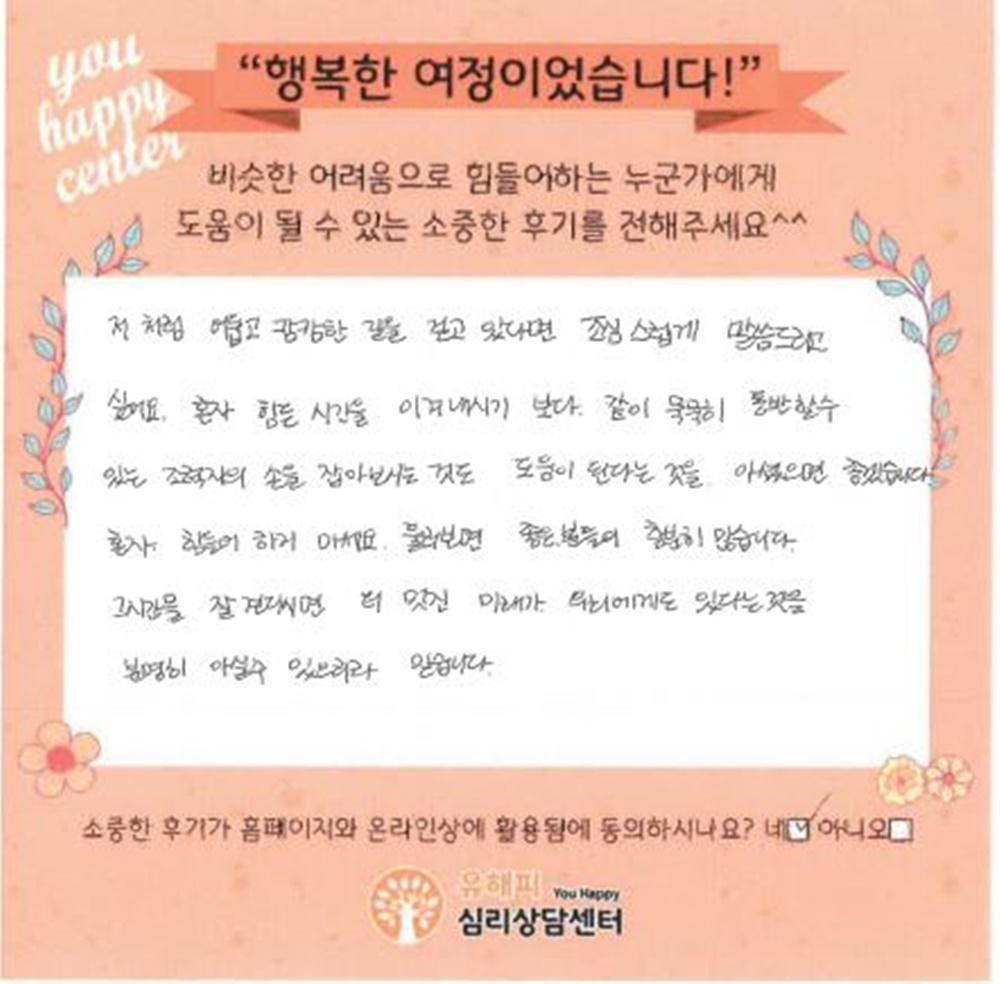 you
happy
center
“행복한 여정이었습니다!”
비슷한 어려움으로 힘들어하는 누군가에게
도움이 될 수 있는 소중한 후기를 전해주세요^^
저 처럼 어둡고 캄캄한 길을 걷고 있다면 조심스럽게 말씀드리고
싶어요. 혼자 힘든 시간을 이겨내시기 보다. 같이 묵묵히 동반할수
있는 조력자의 손을 잡아보시는 것도 도움이 된다는 것을. 아셨으면 좋겠습니다
혼자. 힘들어 하지 마세요. 둘러보면 좋은.분들이 충분히 많습니다.
그시간을 잘 견디시면 더 멋진 미래가 우리에게도 있다는것을
분명히 아실수 있으리라 믿습니다.
소중한 후기가 홈페이지와 온라인상에 활용됨에 동의하시나요? 네☑ 아니오☐
유해피 You Happy
심리상담센터